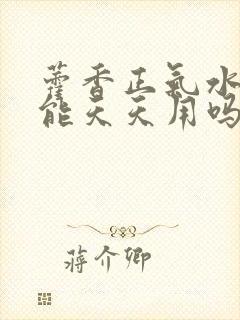 藿香正气水
能天天用吗
蒋介卿